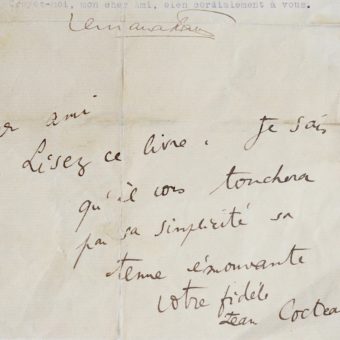 Croyez-moi, mon cher Ami, bien cordialement à vous.
ami
Lisez ce livre. Je sais
qu'il vous touchera
par sa simplicité sa
tenue émouvante
Votre fidèle
Jean Cocteau